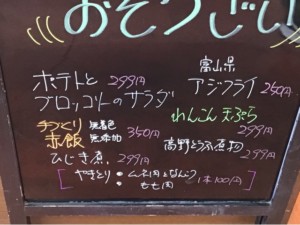 おそうざい
ポテトと
ブロッコリーのサラダ 299円
手づくり 無着色 無添加
赤飯 350円
ひじき煮 299円
富山県
アジフライ 250円
れんこん天ぷら
299円
高野とうふ煮物
299円
やきとり ・ムネ肉となんこつ
・もも肉
1本100円